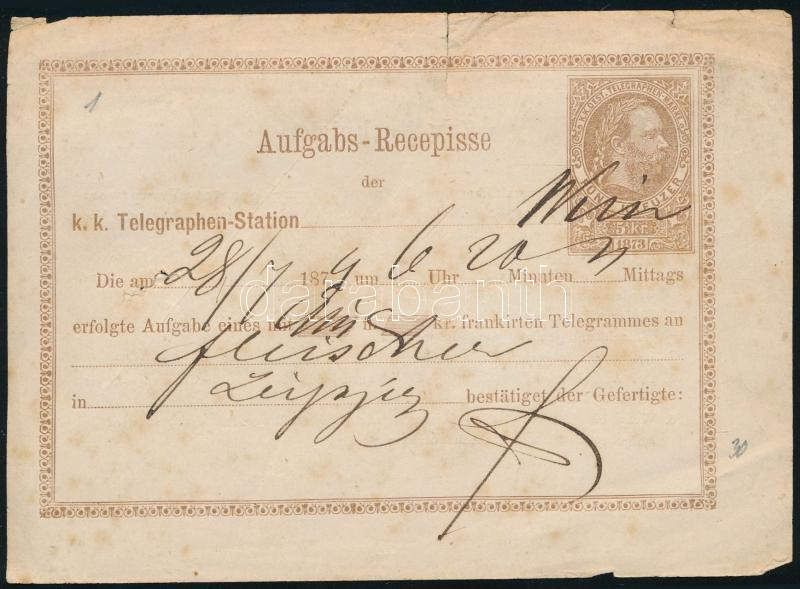 1
K.K. OEST. TELEGRAPHEN-MARKE
Aufgabs-Recepisse
der
FÜNF KREUZER
5 kr
1873
k. k. Telegraphen-Station Wien
Die am 28/7 1874 um 6 Uhr 20 Minuten N Mittags
erfolgte Aufgabe eines mit kr. frankirten Telegrammes an
Fleischer
in Leipzig bestätiget der Gefertigte:
30
darabanth